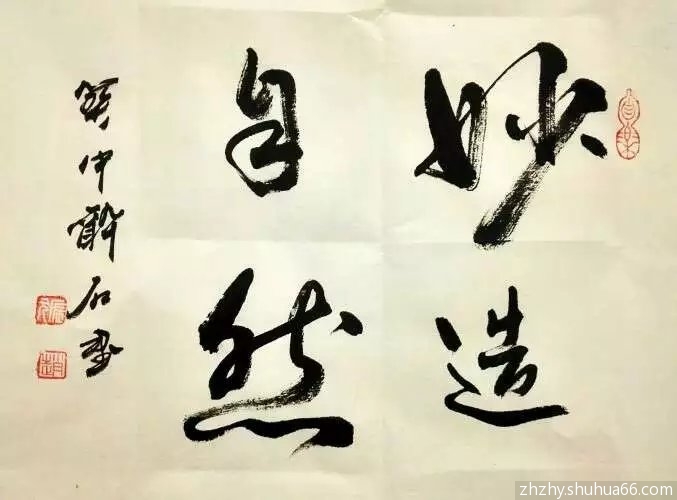 妙造
自然
中醉石
zhzhy.shuhua66.com